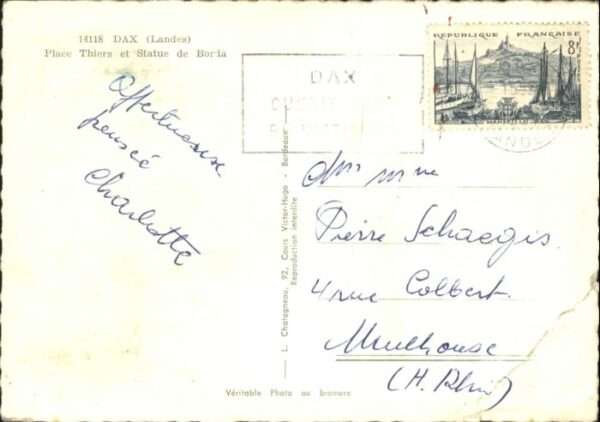 14118 DAX (Landes)
Place Thiers et Statue de Borda
Affectueuse
pensée
Charlotte
L. Chatagneau, 92, Cours Victor-Hugo - Bordeaux
Reproduction interdite
RÉPUBLIQUE FRANÇAISE
8F
DAX
Mr Mme
Pierre Schaegis
4 rue Colbert.
Mulhouse
(H. Rhin)
Véritable Photo au bromure